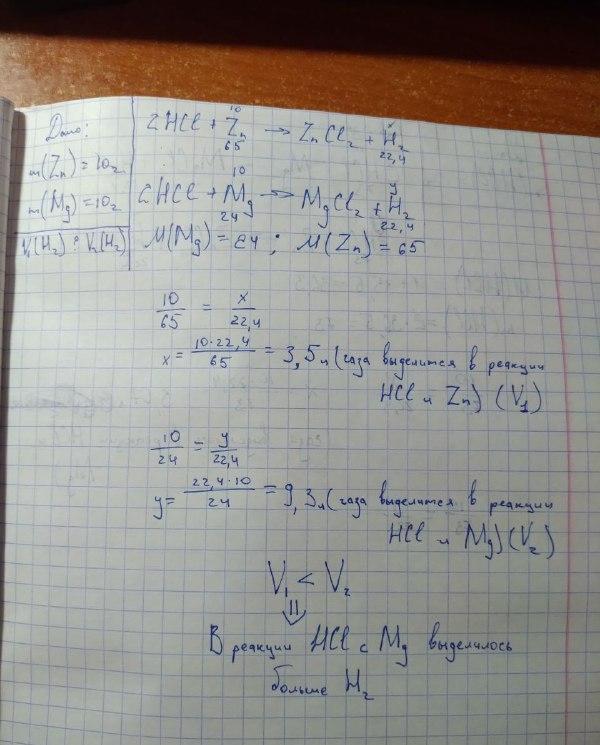 Дано:
m(Zn) = 10г
m(Mg) = 10г
V₁(H₂) ? V₂(H₂)
10 x
2HCl + Zn → ZnCl₂ + H₂
65 22,4
10 y
2HCl + Mg → MgCl₂ + H₂
24 22,4
M(Mg) = 24 ; M(Zn) = 65
10/65 = x/22,4
x = 10·22,4/65 = 3,5л (газа выделится в реакции
HCl и Zn) (V₁)
10/24 = y/22,4
y = 22,4·10/24 = 9,3л (газа выделится в реакции
HCl и Mg) (V₂)
V₁ < V₂
⇓
В реакции HCl с Mg выделилось
больше H₂